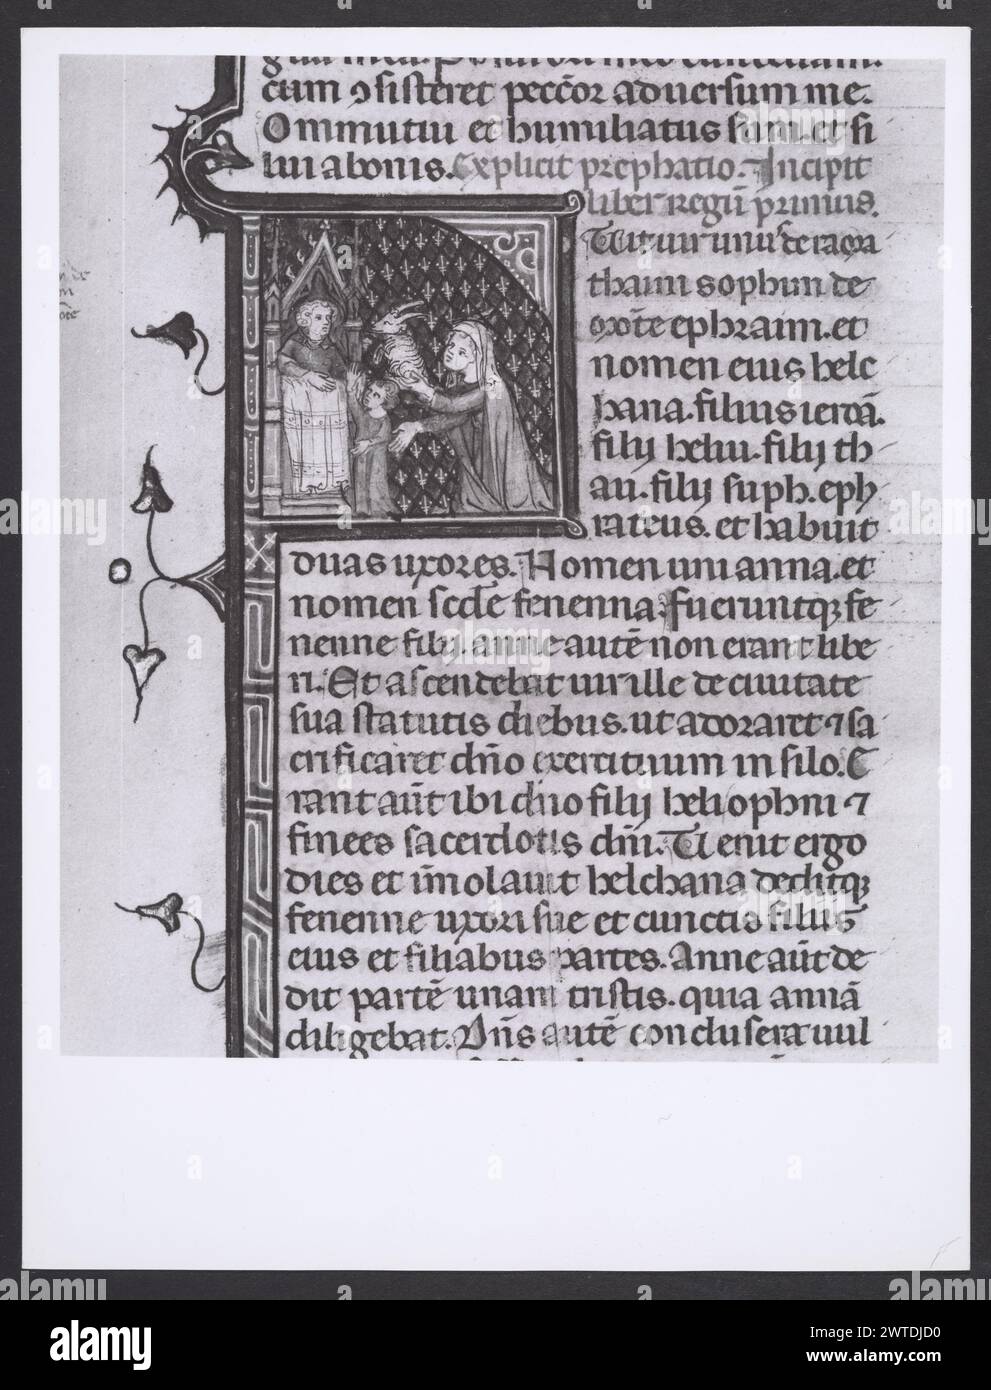 cum ɔsisteret peccor aduersum me.
Ommutui et humiliatus sum. et si
lui a bonis. Explicit prephatio. Incipit
liber regū primus.
Fuit uir unus de rama
thaim sophim de
mōte ephraim. et
nomen eius helc
hana. filius ieroā.
filij heliu. filij th
au. filij suph. eph
rateus. et habuit
duas uxores. Nomen uni anna. et
nomen scd̄e fenenna. fueruntqꝫ fe
nenne filij. anne autē non erant libe
ri. Et ascendebat uir ille de ciuitate
sua statutis diebus. ut adoraret ⁊ sa
crificaret dn̄o exercituum in silo. E
rant aūt ibi duo filij heli ophni ⁊
finees sacerdotis dn̄i. Uenit ergo
dies et īmolauit helchana deditqꝫ
fenenne uxori sue et cunctis filiis
eius et filiabus partes. Anne aūt de
dit partē unam tristis. quia annā
diligebat. Dn̄s autē concluserat uul
alamy
Image ID: 2WTDJD0
www.alamy.com